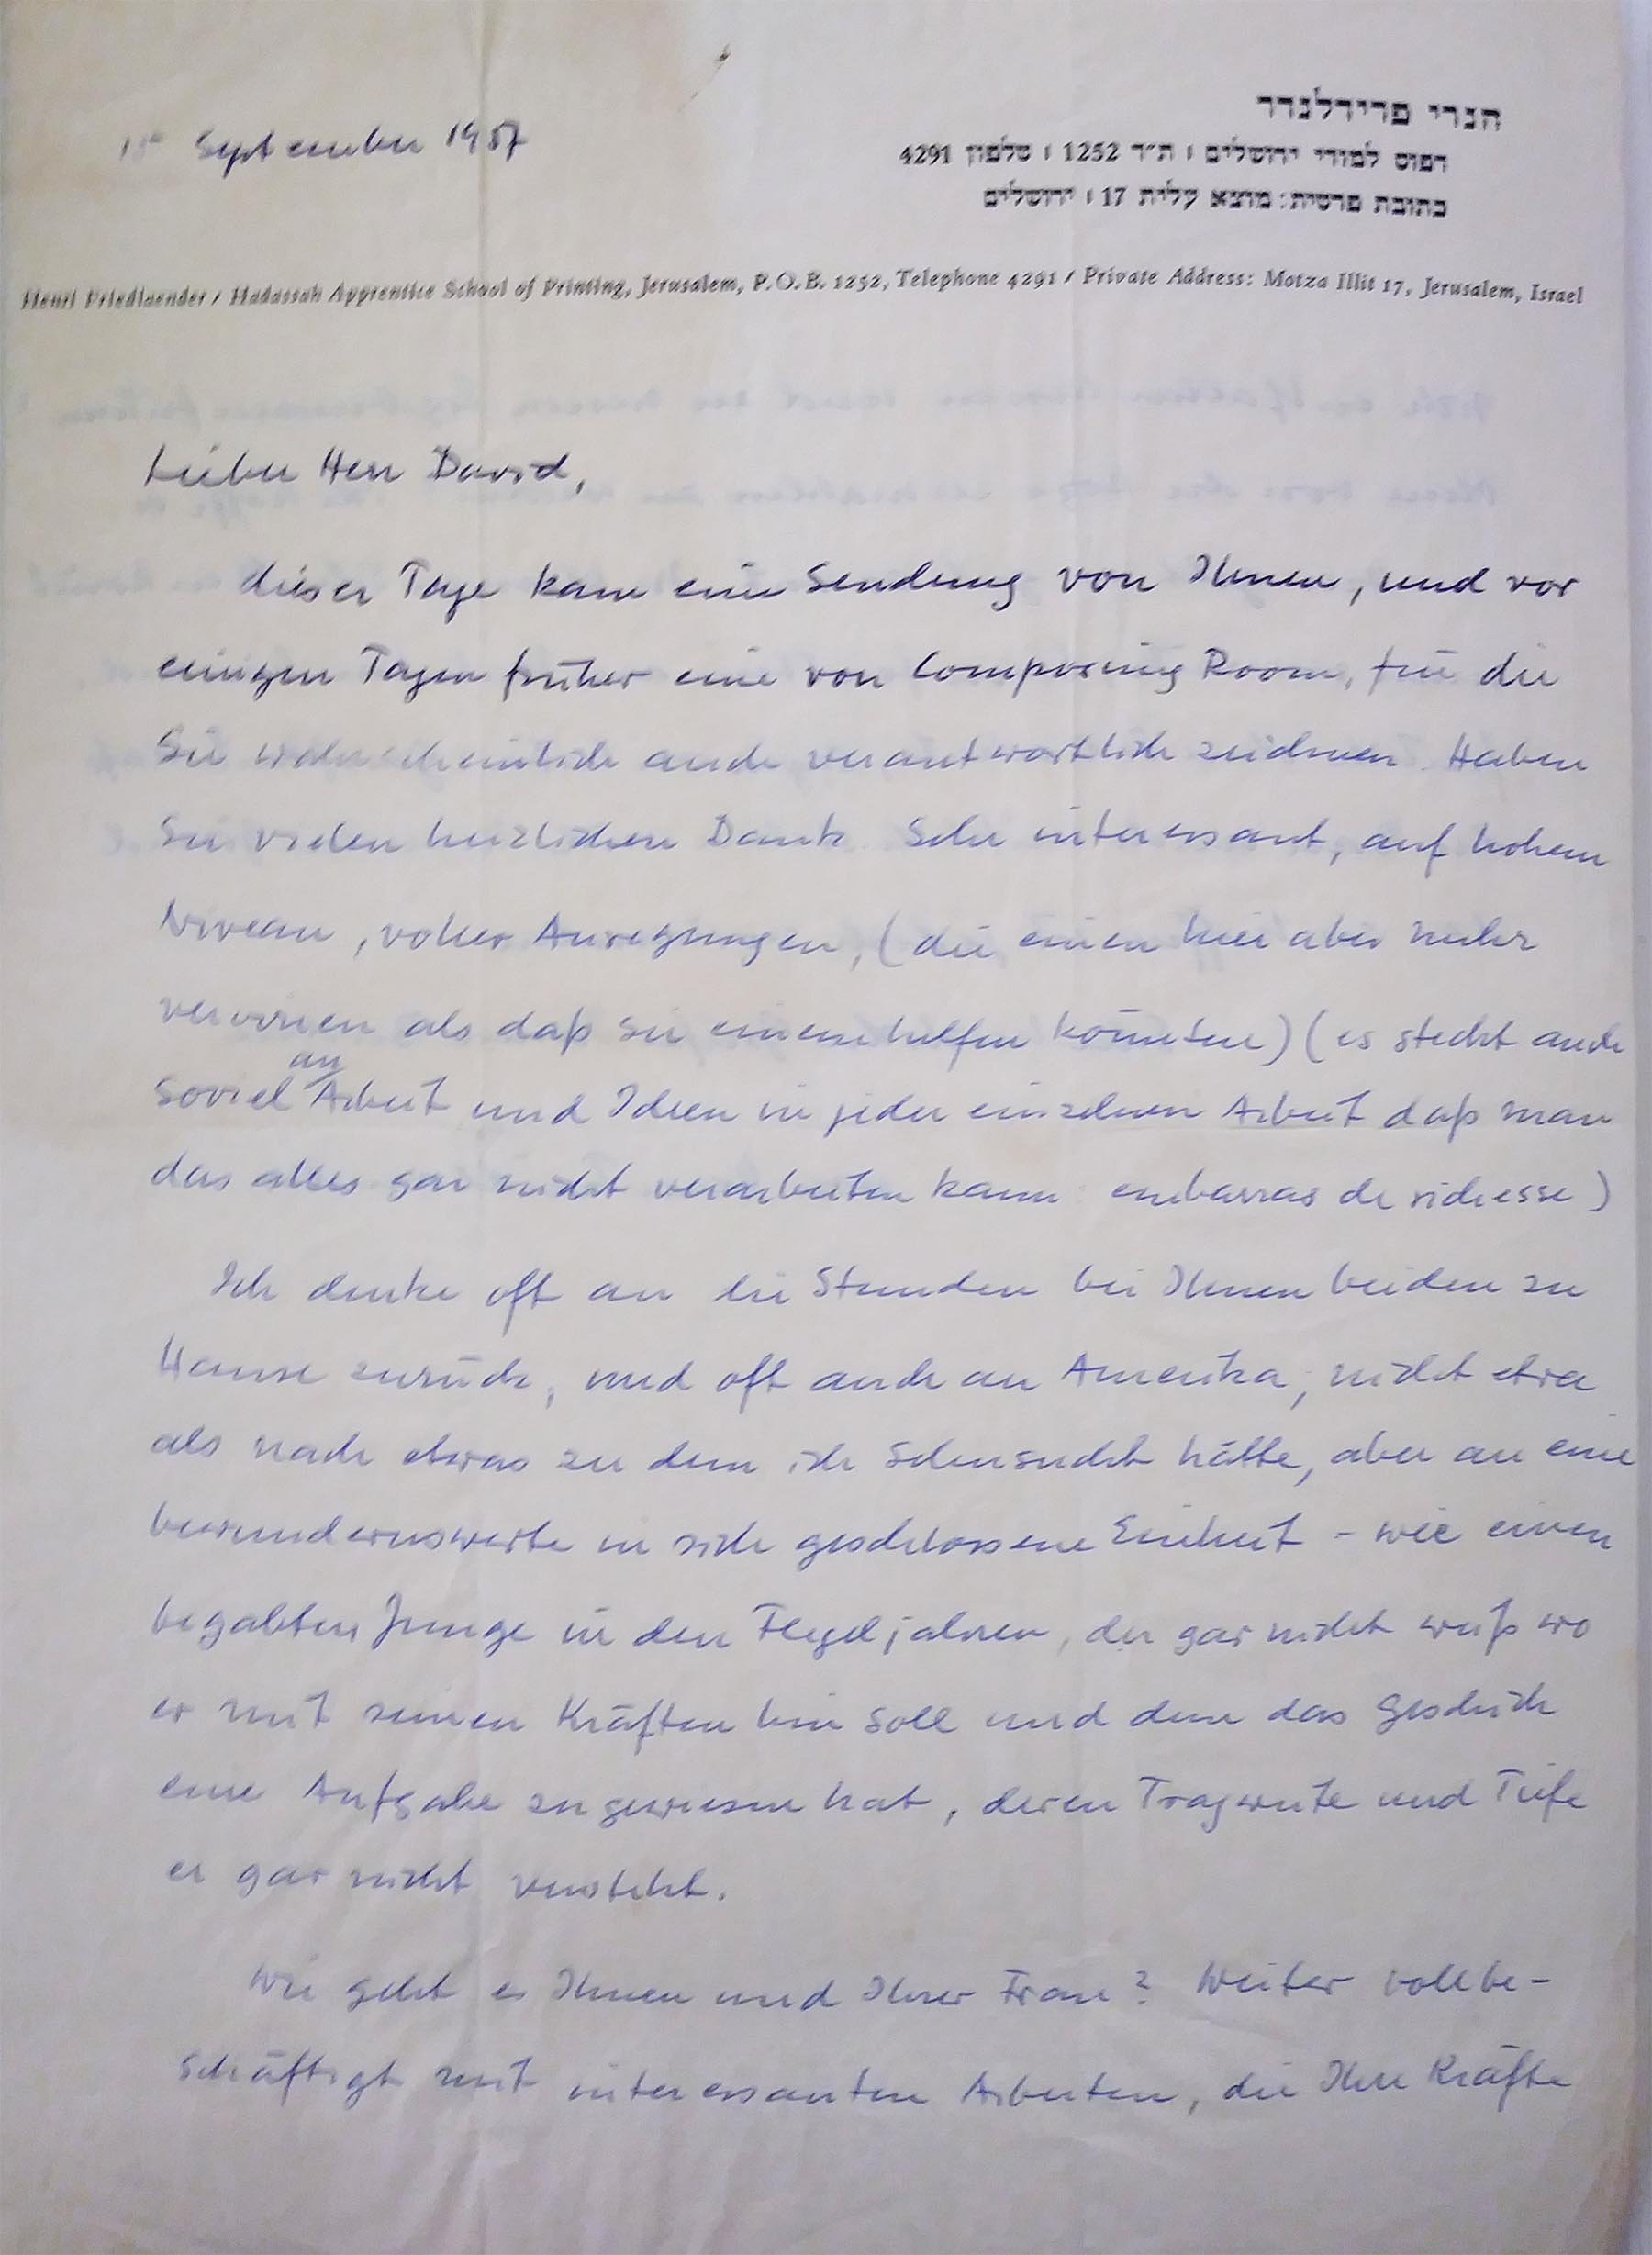 הנרי פרידלנדר
דפוס למודי ירושלים / ת״ד 1252 / טלפון 4291
כתובת פרטית: מוצא עלית 17 / ירושלים
September 1957
Henri Friedlaender / Hadassah Apprentice School of Printing, Jerusalem, P.O.B. 1252, Telephone 4291 / Private Address: Motza Illit 17, Jerusalem, Israel
Lieber Herr David,
dieser Tage kam eine Sendung von Ihnen, und vor
einigen Tagen früher eine von Composing Room, für die
Sie wahrscheinlich auch verantwortlich zeichnen. Haben
Sie vielen herzlichen Dank. Sehr interessant, auf hohem
Niveau, voller Anregungen, (die einen hier aber mehr
verwirren als daß sie einem helfen könnten) (es steckt auch
soviel an Arbeit und Ideen in jeder einzelnen Arbeit daß man
das alles gar nicht verarbeiten kann embarras de richesse)
Ich denke oft an die Stunden bei Ihnen beiden zu
Hause zurück, und oft auch an Amerika, nicht etwa
als nach etwas zu dem ich Sehnsucht hätte, aber an eine
bewundernswerte in sich geschlossene Einheit – wie einen
begabten Junge in den Flegeljahren, der gar nicht weiß wo
er mit seinen Kräften hin soll und dem das Geschick
eine Aufgabe zugewiesen hat, deren Tragweite und Tiefe
er gar nicht versteht.
Wie geht es Ihnen und Ihrer Frau? Weiter vollbe-
schäftigt mit interessanten Arbeiten, die Ihre Kräfte